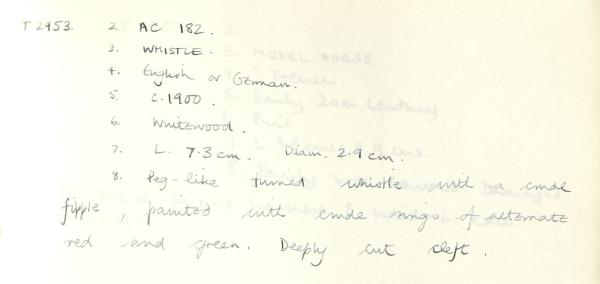 T 2953. 2. AC 182.
3. WHISTLE.
4. English or German.
5. c.1900.
6. Whitewood.
7. L. 7.3cm. Diam. 2.9cm.
8. Peg-like turned whistle with a crude
fipple, painted with crude rings of alternate
red and green. Deeply cut cleft.